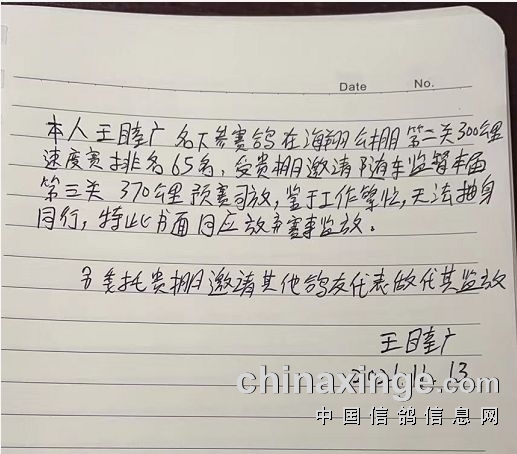 Date No.
本人王睦广名下参赛鸽在海翔公棚第二关300公里
速度赛排名65名,受贵棚邀请随车监督本届
第三关370公里预赛司放,鉴于工作繁忙,无法抽身
同行,特此书面回应放弃赛事监放。
委托贵棚邀请其他鸽友代表做代其监放
王睦广
2021.11.13
chinaxinge.com
中国信鸽信息网